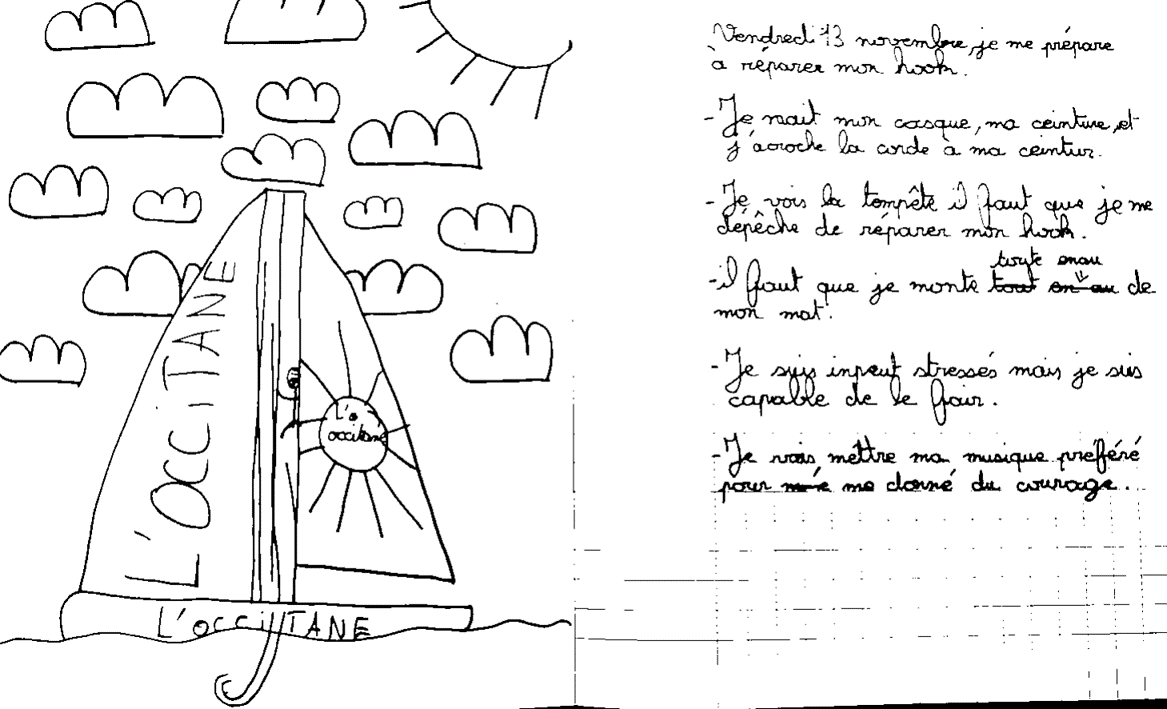 L'OCCITANE
L'occitane
L'OCCITANE
Vendredi 13 novembre, je me prépare
à réparer mon hook.
- Je mait mon casque, ma ceinture, et
j'acroche la corde à ma ceintur.
- Je vois la tempête il faut que je me
dépêche de réparer mon hook.
toute enau
-il faut que je monte tout en au de
mon mat.
- Je suis inpeut stressés mais je suis
capable de le fair.
- Je vais mettre ma musique préféré
pour me donné du courage.